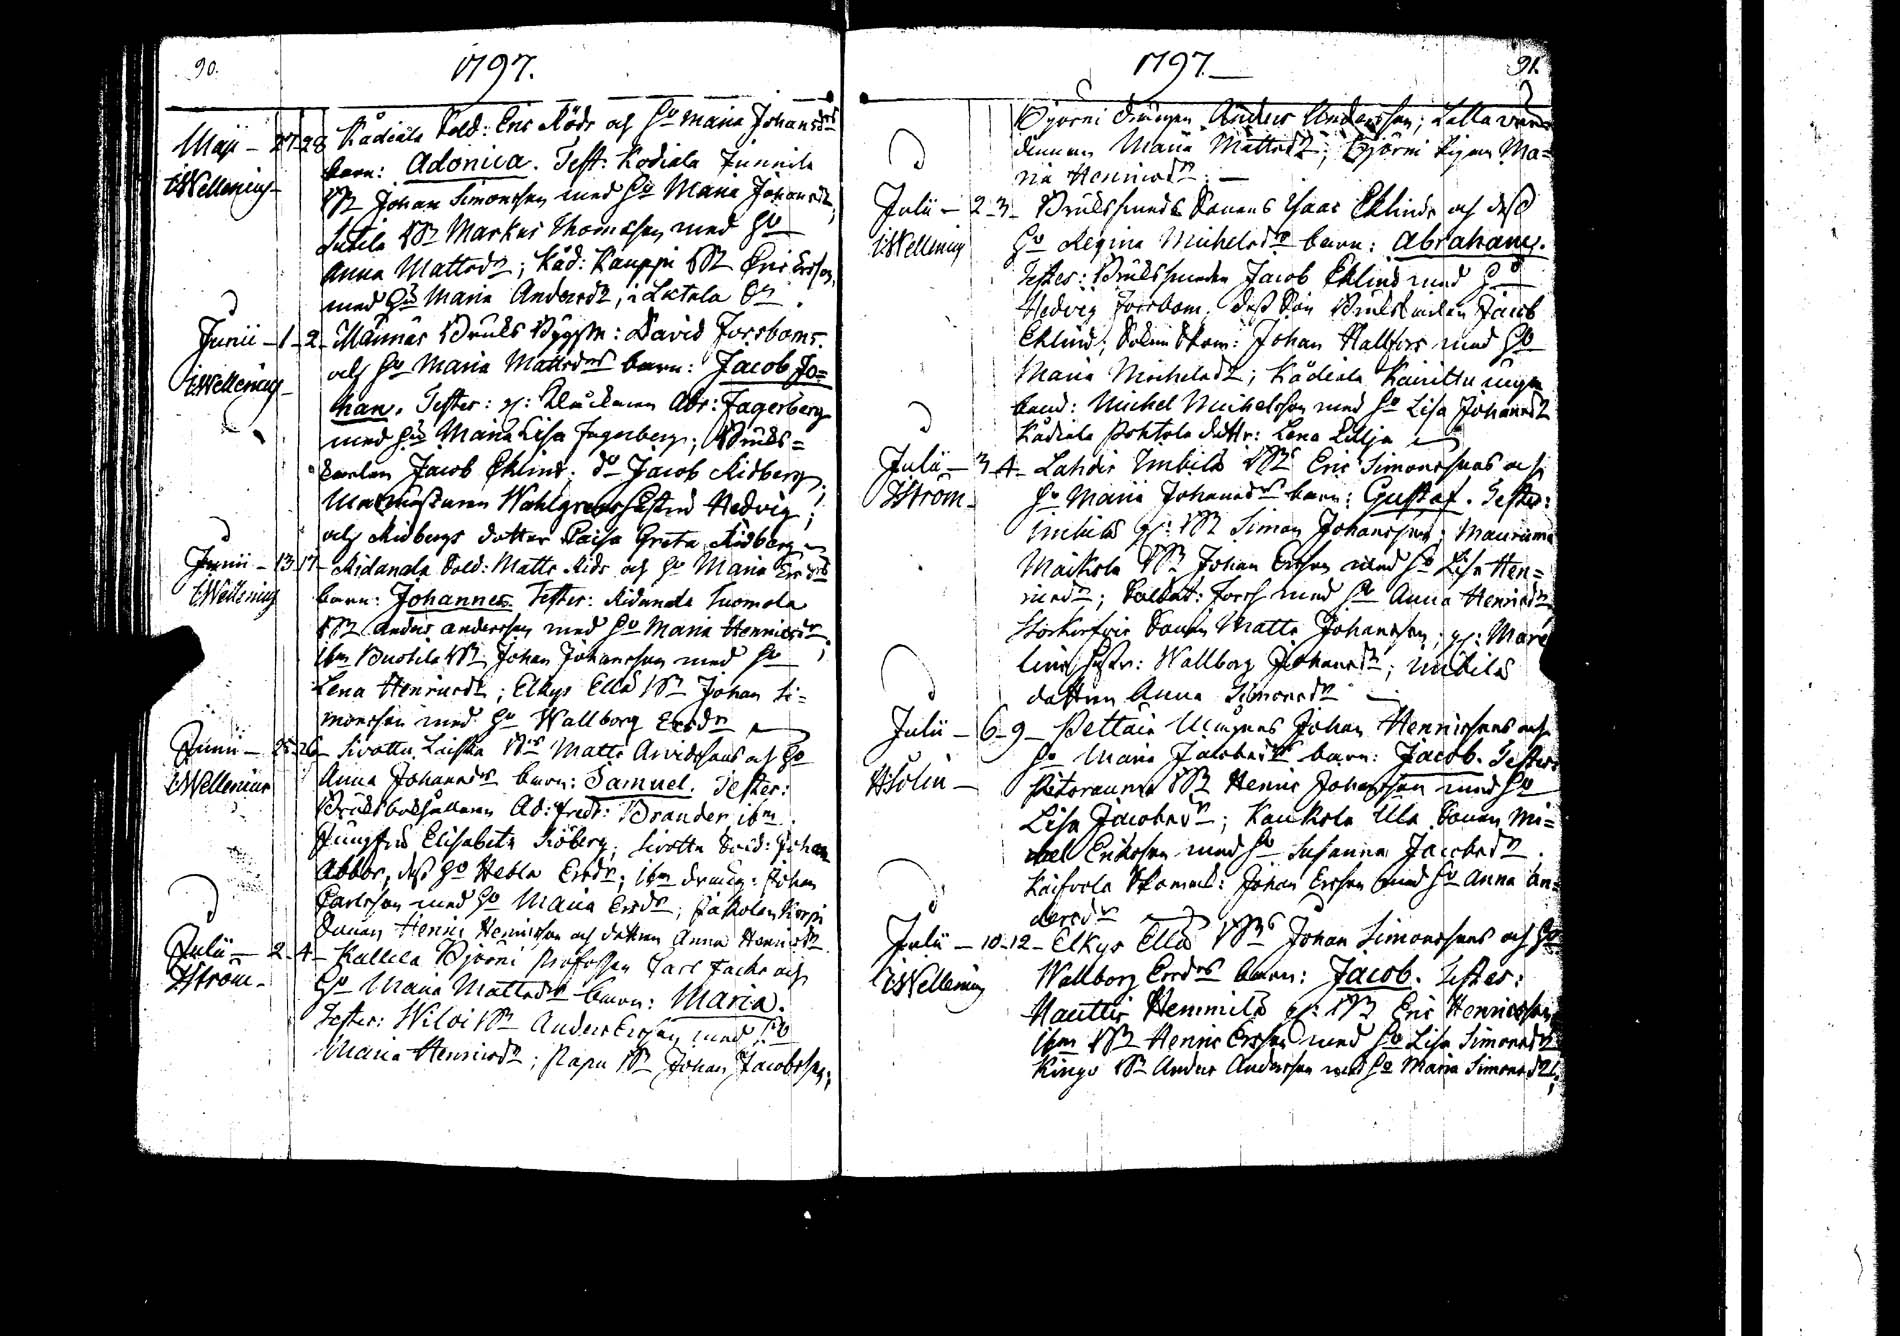 90.
1797.
Maji - 27 28 Kådiala Sold: Eric Röds och H:o Maria Johansd:rs
I:Wellenius barn: Adonica. Test: Kodiala Junnila
Bn Johan Simonsson med H:o Maria Johansd:r;
Sutila Bn Markus Thomasson med H:o
Anna Mattsd:r; Kåd: Kauppi Bn Eric Ersson
med H:o Maria Andersd:r, i Letala Sn.
Junii - 1 - 2 - Männäs Bruks Byggm: David Forsboms
I:Wellenius och H:o Maria Mattsd:rs barn: Jacob Jo=
han. Tester: Klockaren Abr: Fagerberg
med H:o Maria Lisa Fagerberg; Bruks=
Jacob Eklind. d:o Jacob Ridberg;
Wahlgrens Hustru Hedvig;
och Ridbergs dotter Caisa Greta Ridberg
Junii - 13 17 - Ridanala Sold: Matts Rids och H:o Maria Ersd:rs
I:Wellenius barn: Johannes. Tester: Ridanala Tuomola
Bn Anders Andersson med H:o Maria Henricsd:r;
ibm Buskila Bn Johan Johansson med H:o
Lena Henricsd:r; Elkys Ella Bn Johan Si=
monsson med H:o Wallborg Ersd:r
Junii - 25 26 - Sivottu Laiska Bns Matts Arvidssons och H:o
I:Wellenius Anna Johansd:rs barn: Samuel. Tester:
Bruksbokhållaren Ad: Fredr: Brander, ibm
Jungfru Elisabeta Sjöberg; Sivottu Sold: Johan
Abbor, dess H:o Hebla Ersd:r; ibm dräng: Johan
Carlsson med H:o Maria Ersd:r; Korpi
Sonen Henric Henricsson och dottren Anna Henricsd:r
Julii - 2 - 4 - Kallela Björni Profossen Carl Facks och
I:Ström - H:o Maria Mattsd:rs barn: Maria.
Tester: Wiloi Bn Anders Ersson med H:o
Maria Henricsd:r; Papu Bn Johan Jacobsson;
1797.
91.
Björni drängen Anders Andersson; Lalla vär
dinnan Maria Mattsd:r; Björni Pigan Ma=
ria Henricsd:r. -
Julii - 2 - 3 - Brukssmeds Sonens Isaac Eklinds och dess
I:Wellenius H:o Regina Michelsd:rs barn: Abraham.
Tester: Bruksmeden Jacob Eklind med H:o
Hedvig Forsbom. dess Son Jacob
Eklind; Johan Hallfors med H:o
Maria Michelsd:r; Kådiala
Michel Michelsson med H:o Lisa Johansd:r
Kådiala Pohtola dottr: Lena Lilja
Julii - 3 4 - Lahdis Imbila Bns Eric Simonssons och
I:Ström - H:o Maria Johansd:rs barn: Gustaf. Tester:
Imbila Bn Simon Johansson; Mauriuma
Maikola Bn Johan Ersson med H:o Lisa Hen=
ricsd:r; Soldat: Forss med H:o Anna Henricsd:r
Sonen Matts Johansson;
Wallborg Johansd:r; Imbila
dottren Anna Simonsd:r -
Julii - 6 - 9 - Pettais Johan Henricssons och
H:Solin - H:o Maria Jacobsd:rs barn: Jacob. Tester:
Pitorauma Bn Henric Johansson med H:o
Lisa Jacobsd:r; Kaukola Ula Sonen Mi=
chel Eriksson med H:o Susanna Jacobsd:r;
Johan Ersson med H:o Anna An=
dersd:r
Julii - 10 - 12 - Elkys Ella Bns Johan Simonssons och H:o
I:Wellenius Wallborg Ersd:rs barn: Jacob. Tester:
Hauttis Hemmilä Bn Eric Henricsson,
ibm Bn Henric Ersson med H:o Lisa Simonsd:r
Ringo Bn Anders Andersson med H:o Maria Simonsd:r;